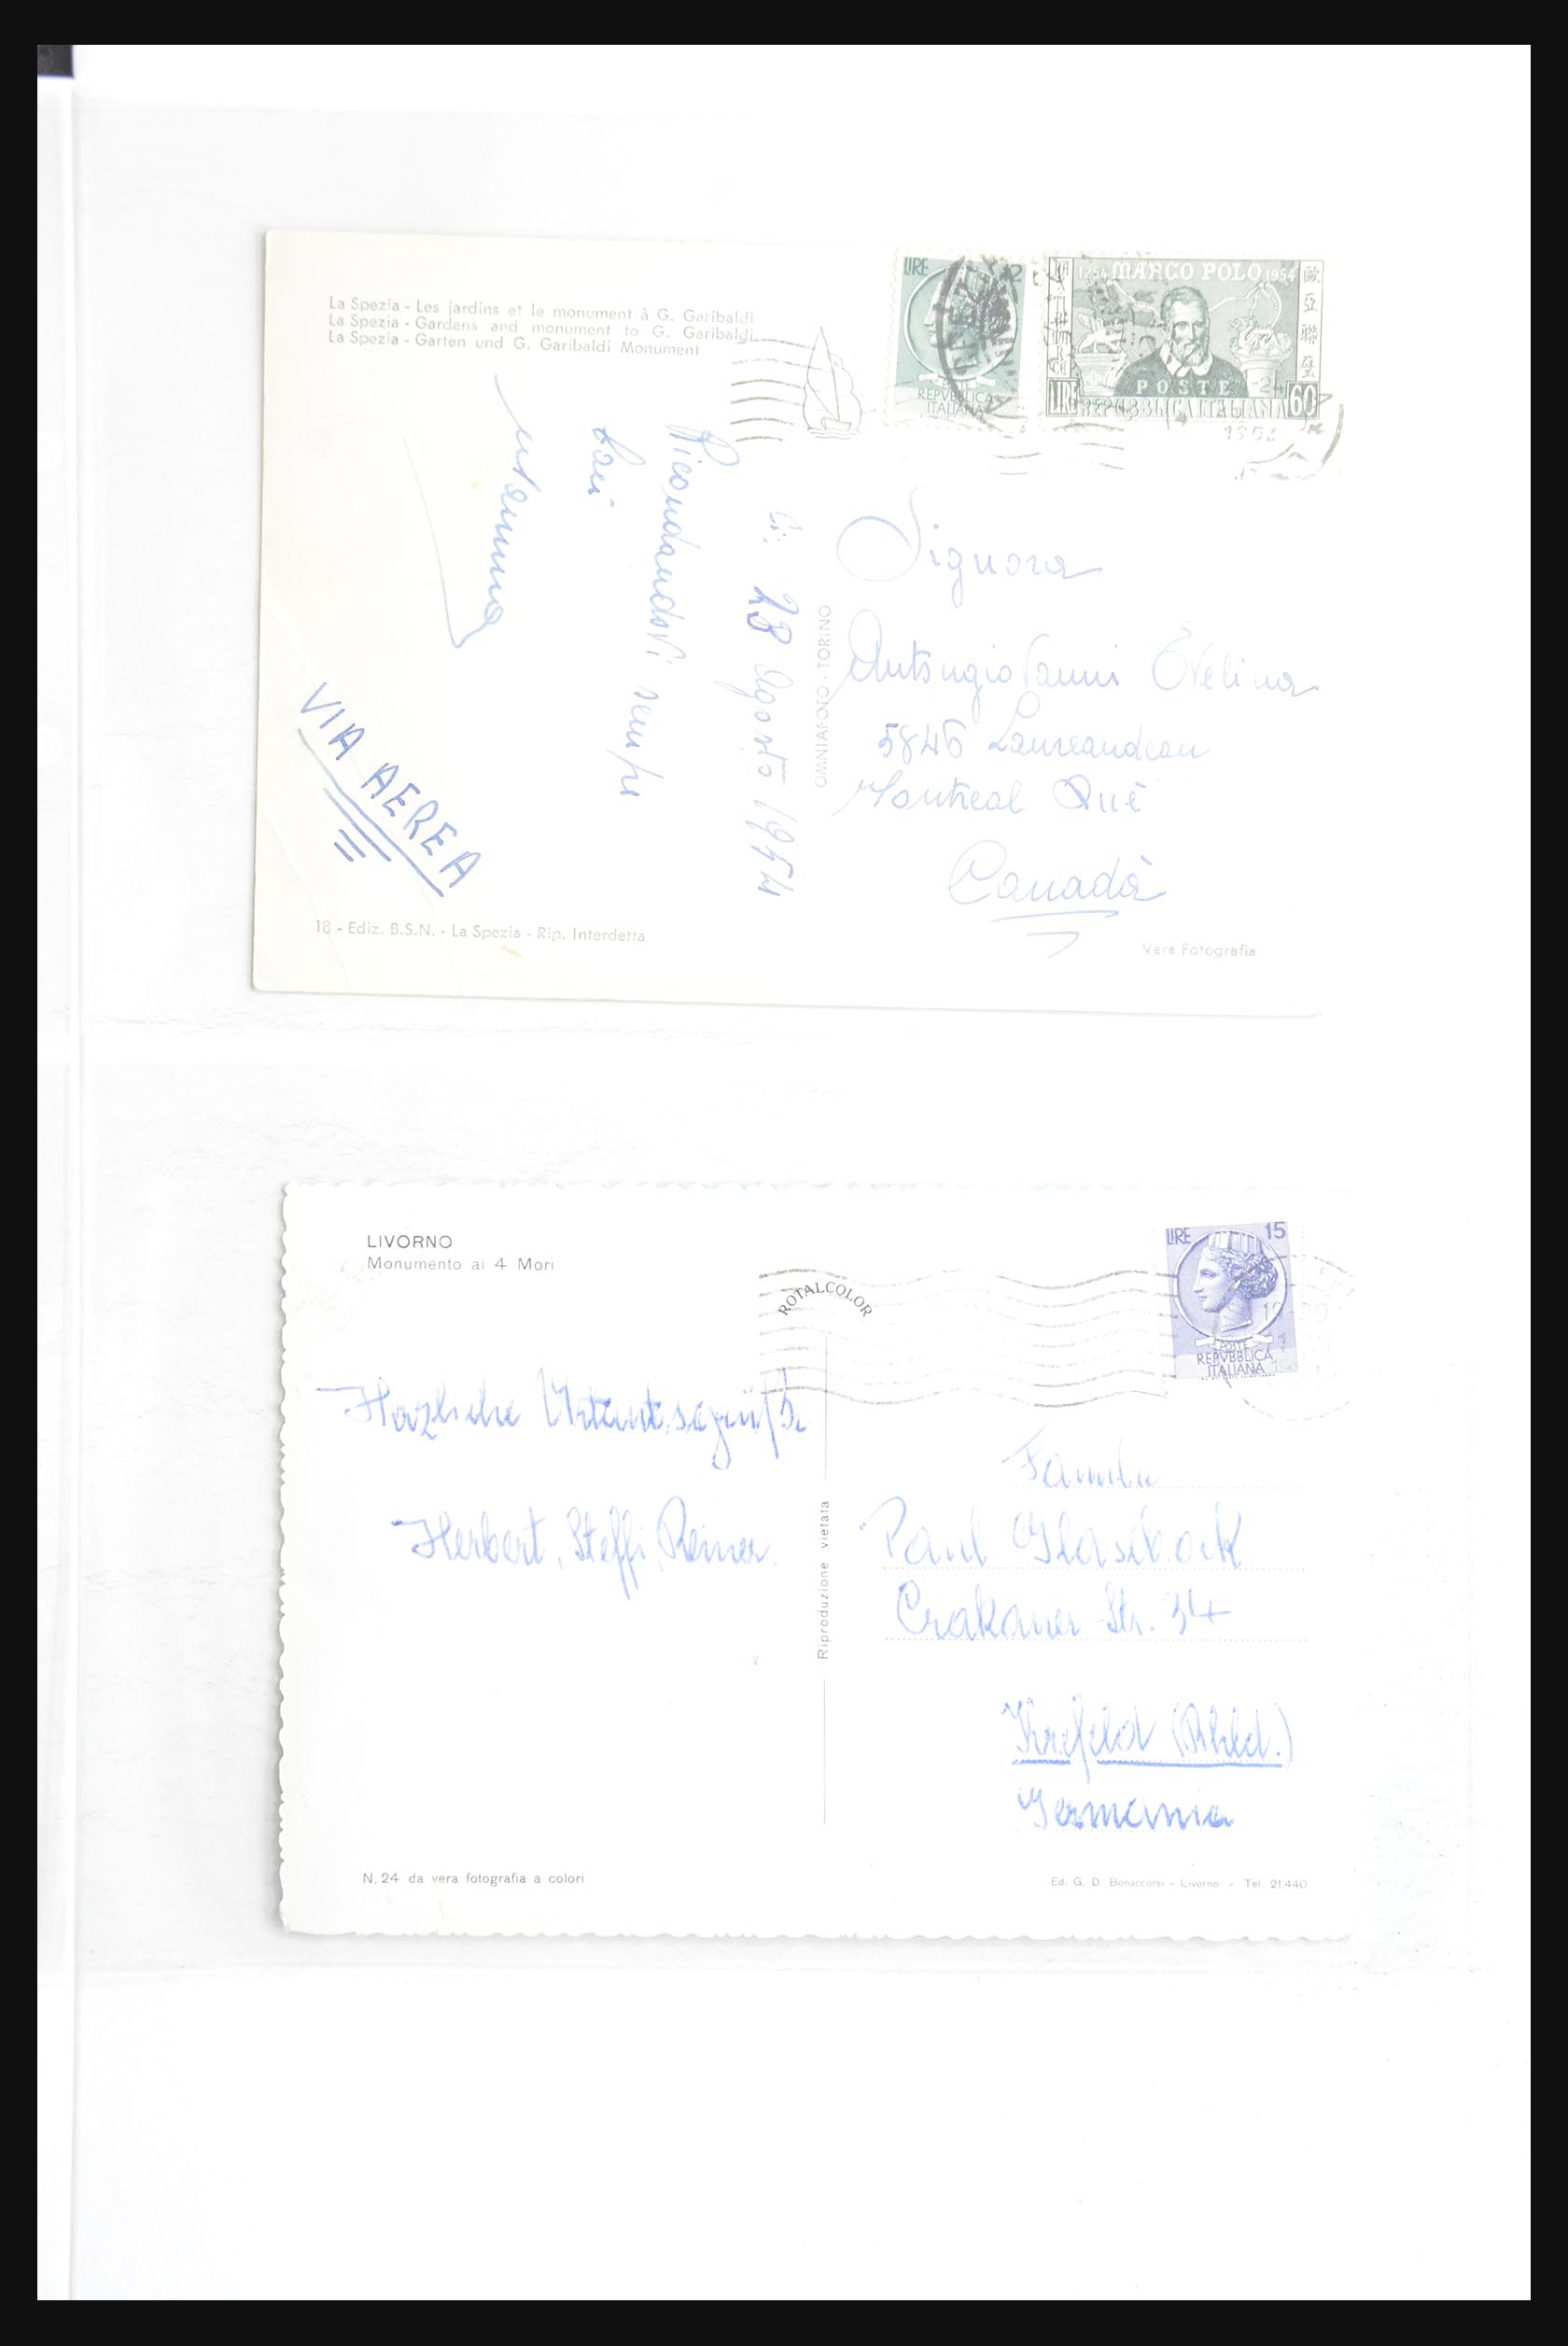 La Spezia - Les jardins et le monument à G. Garibaldi
La Spezia - Gardens and monument to G. Garibaldi
La Spezia - Garten und G. Garibaldi Monument
LIRE
POSTE
REPVBBLICA
ITALIANA
1254 MARCO POLO 1954
歐亞聯璧
POSTE
LIRE REPUBBLICA ITALIANA 60
28 Agosto 1954
Ricordandovi sempre
cari
mamma
VIA AEREA
OMNIAFOTO - TORINO
Signora
Antongiovanni Evelina
5846 Laureandeau
Montreal Què
Canadà
18 - Ediz. B.S.N. - La Spezia - Rip. Interdetta
Vera Fotografia
LIVORNO
Monumento ai 4 Mori
ROTALCOLOR
LIRE 15
POSTE
REPVBBLICA
ITALIANA
Herzliche Urlaubsgrüße
Herbert, Steffi, Reiner.
Riproduzione vietata
Familie
Paul
Crakauer Str. 34
Krefeld (Rhld.)
Germania
N. 24 da vera fotografia a colori
Ed. G. D. Bonaccorsi - Livorno - Tel. 21.440